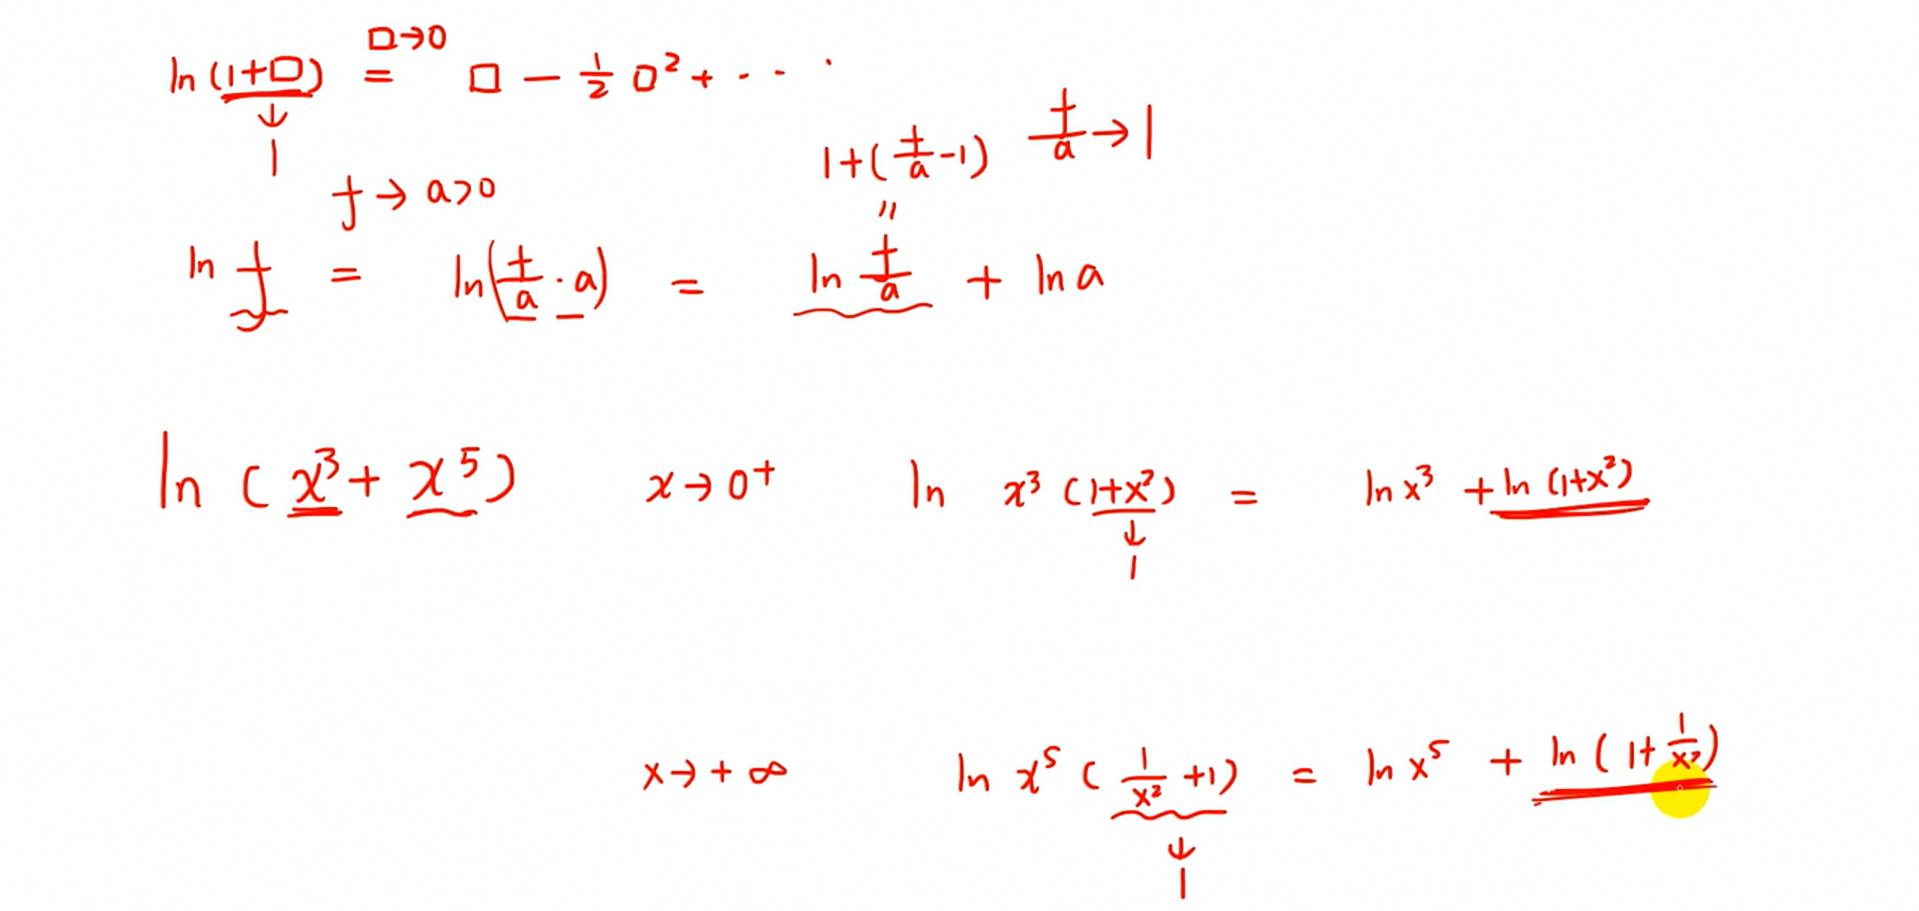 □→0
ln(1+□) = □ − ½ □² + ⋯
↓
1
1+(f/a −1) f/a → 1
f → a>0
||
ln f = ln(f/a · a) = ln f/a + ln a
ln (x³ + x⁵) x→0⁺ ln x³ (1+x²) = ln x³ + ln (1+x²)
↓
1
x→+∞ ln x⁵ (1/x² +1) = ln x⁵ + ln (1+ 1/x²)
↓
1